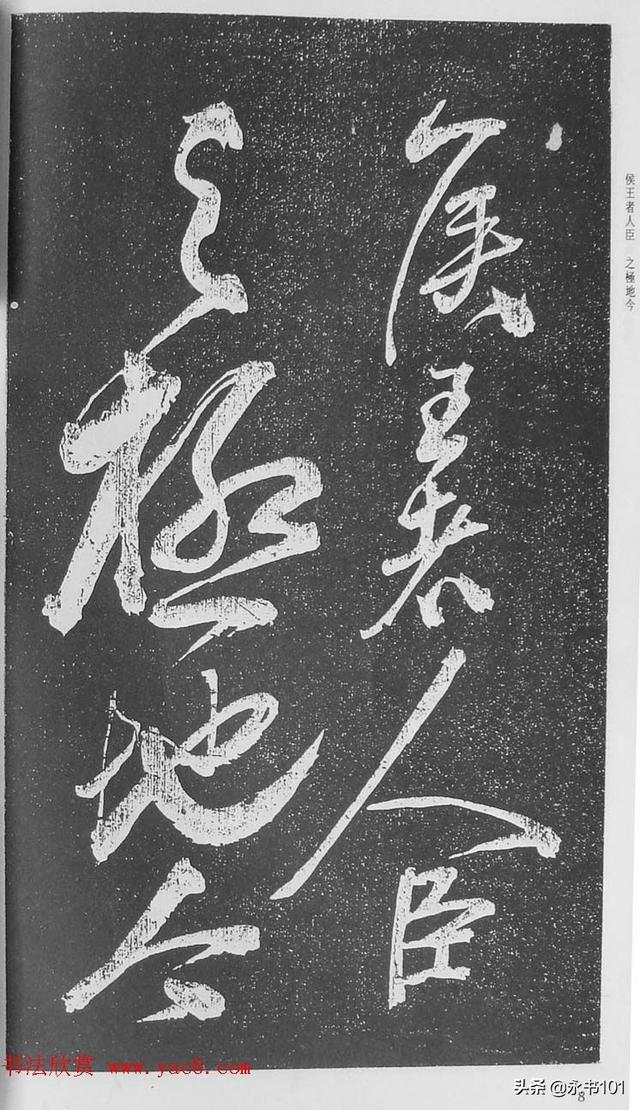 侯王者人臣
之極地今
侯王者人臣 之極地今
8
书法欣赏 www.yac8.com
头条 @永书101